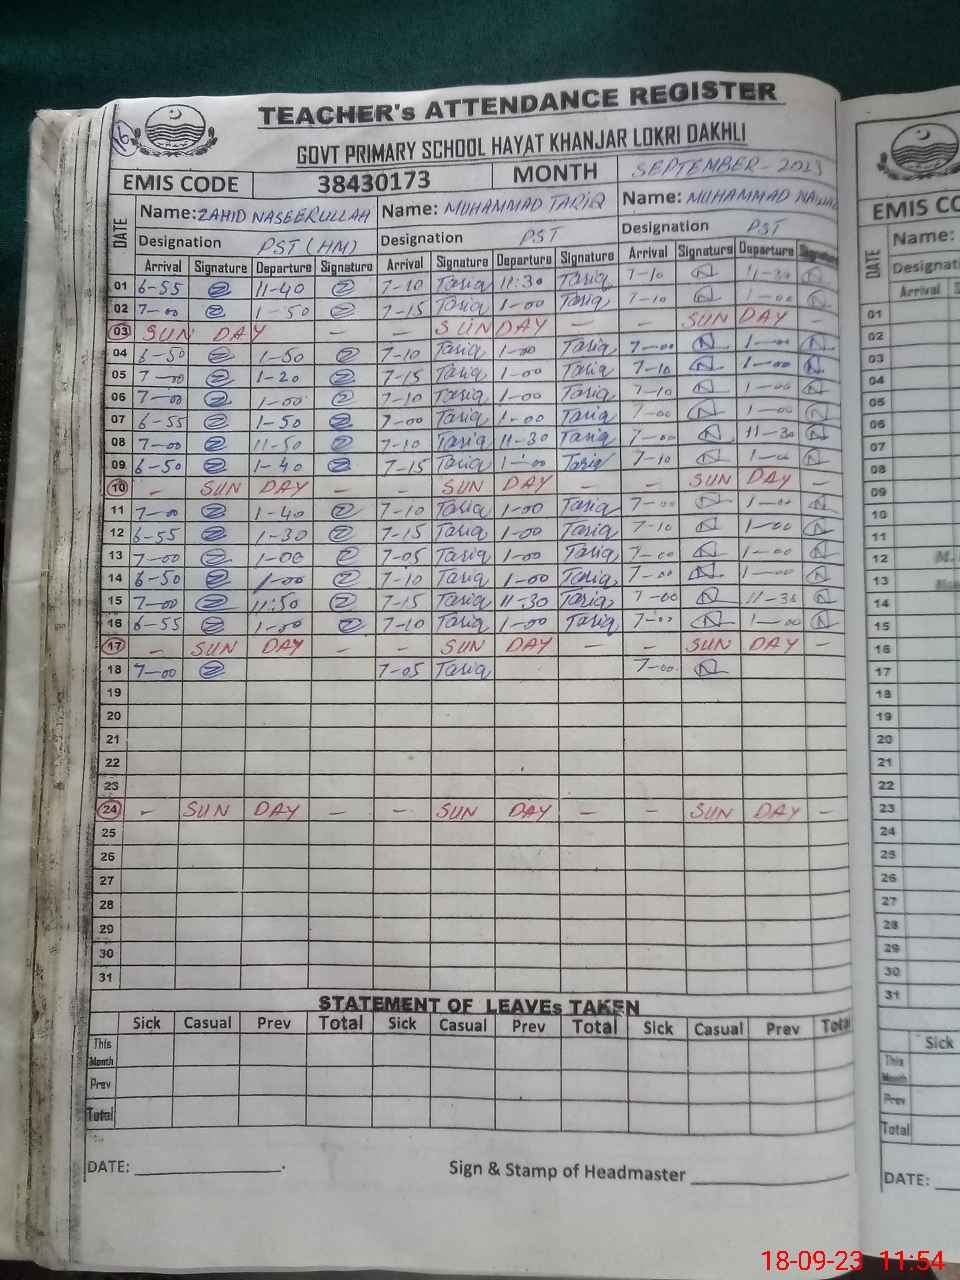 TEACHER's ATTENDANCE REGISTER
GOVT PRIMARY SCHOOL HAYAT KHANJAR LOKRI DAKHLI
EMIS CODE 38430173 MONTH SEPTEMBER-2023
DATE Name: ZAHID NASEERULLAH Name: MUHAMMAD TARIQ Name: MUHAMMAD NAWAZ
Designation PST (HM) Designation PST Designation PST
Arrival Signature Departure Signature Arrival Signature Departure Signature Arrival Signature Departure Signature
01 6-55 11-40 7-10 Tariq 11:30 Tariq 7-10 11-30
02 7-00 1-50 7-15 Tariq 1-00 Tariq 7-10 1-00
03 SUN DAY - - SUN DAY - - SUN DAY -
04 6-50 1-50 7-10 Tariq 1-00 Tariq 7-00 1-00
05 7-00 1-20 7-15 Tariq 1-00 Tariq 7-10 1-00
06 7-00 1-00 7-10 Tariq 1-00 Tariq 7-10 1-00
07 6-55 1-50 7-00 Tariq 1-00 Tariq 7-00 1-00
08 7-00 11-50 7-10 Tariq 11-30 Tariq 7-00 11-30
09 6-50 1-40 7-15 Tariq 1-00 Tariq 7-10 1-00
10 - SUN DAY - - SUN DAY - - SUN DAY -
11 7-00 1-40 7-10 Tariq 1-00 Tariq 7-00 1-00
12 6-55 1-30 7-15 Tariq 1-00 Tariq 7-10 1-00
13 7-00 1-00 7-05 Tariq 1-00 Tariq 7-00 1-00
14 6-50 1-00 7-10 Tariq 1-00 Tariq 7-00 1-00
15 7-00 11:50 7-15 Tariq 11-30 Tariq 7-00 11-30
16 6-55 1-00 7-10 Tariq 1-00 Tariq 7-00 1-00
17 - SUN DAY - - SUN DAY - - SUN DAY -
18 7-00 7-05 Tariq 7-00
19
20
21
22
23
24 - SUN DAY - - SUN DAY - - SUN DAY -
25
26
27
28
29
30
31
STATEMENT OF LEAVEs TAKEN
Sick Casual Prev Total Sick Casual Prev Total Sick Casual Prev Total
This Month
Prev
Total
DATE: Sign & Stamp of Headmaster
EMIS CO
DATE Name:
Designati
Arrival
01
02
03
04
05
06
07
08
09
10
11
12
13
14
15
16
17
18
19
20
21
22
23
24
25
26
27
28
29
30
31
Sick
This Month
Prev
Total
DATE:
18-09-23 11:54